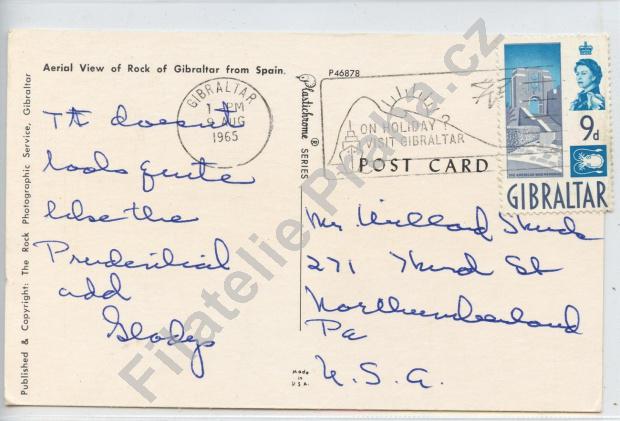 Aerial View of Rock of Gibraltar from Spain.
P46878
GIBRALTAR
1- PM
9 AUG
1965
ON HOLIDAY ?
VISIT GIBRALTAR
POST CARD
Plastichrome ® SERIES
THE AMERICAN WAR MEMORIAL
9d
GIBRALTAR
It doesn't
looks quite
like the
Prudential
add
Gladys
Mr. Willard
271 Third St
Northumberland
Pa
U.S.A.
Made in U.S.A.
Published & Copyright: The Rock Photographic Service, Gibraltar
Filatelie Prchka.cz